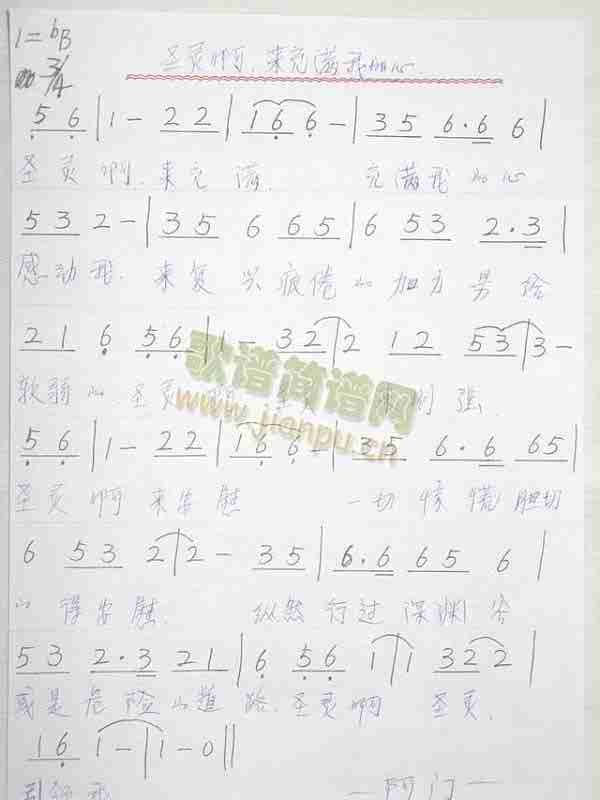 1=bB
3/4
圣灵啊,来充满我的心.
5 6 | 1 - 2 2 | 1 6 6 - | 3 5 6·6 6 |
圣灵啊,来充满, 充满我的心
5 3 2 - | 3 5 6 6 5 | 6 5 3 2·3 |
感动我, 来复兴疲倦的加力
2 1 6 5 6 | 1 - 3 2 | 2 1 2 5 3 | 3 -
软弱的 圣灵 强.
5 6 | 1 - 2 2 | 1 6 6 - | 3 5 6·6 6 5 |
圣灵啊来安慰 一切 胆切
6 5 3 2 | 2 - 3 5 | 6·6 6 5 6 |
的得安慰. 纵然行过深渊
5 3 2·3 2 1 | 6 5 6 1 | 1 3 2 2 |
或是危险的道路.圣灵啊 圣灵.
1 6 1 - | 1 - 0 ||
—阿门—
歌谱简谱网
www.jianpu.cn